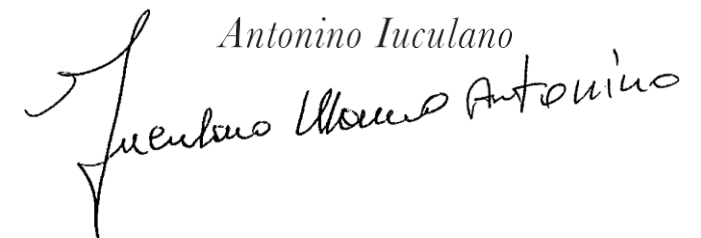 Antonino Iuculano
Iuculano Marco Antonino